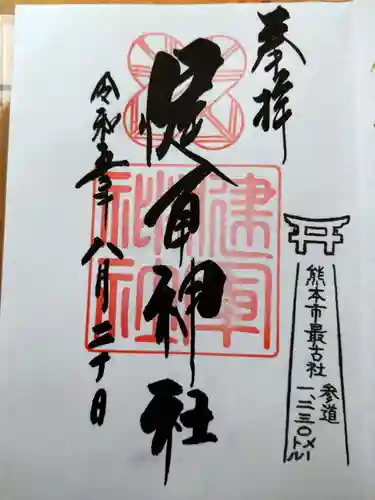 奉拝
健軍神社
令和五年八月二十日
健軍神社
熊本市最古社
参道
一、二三〇メートル